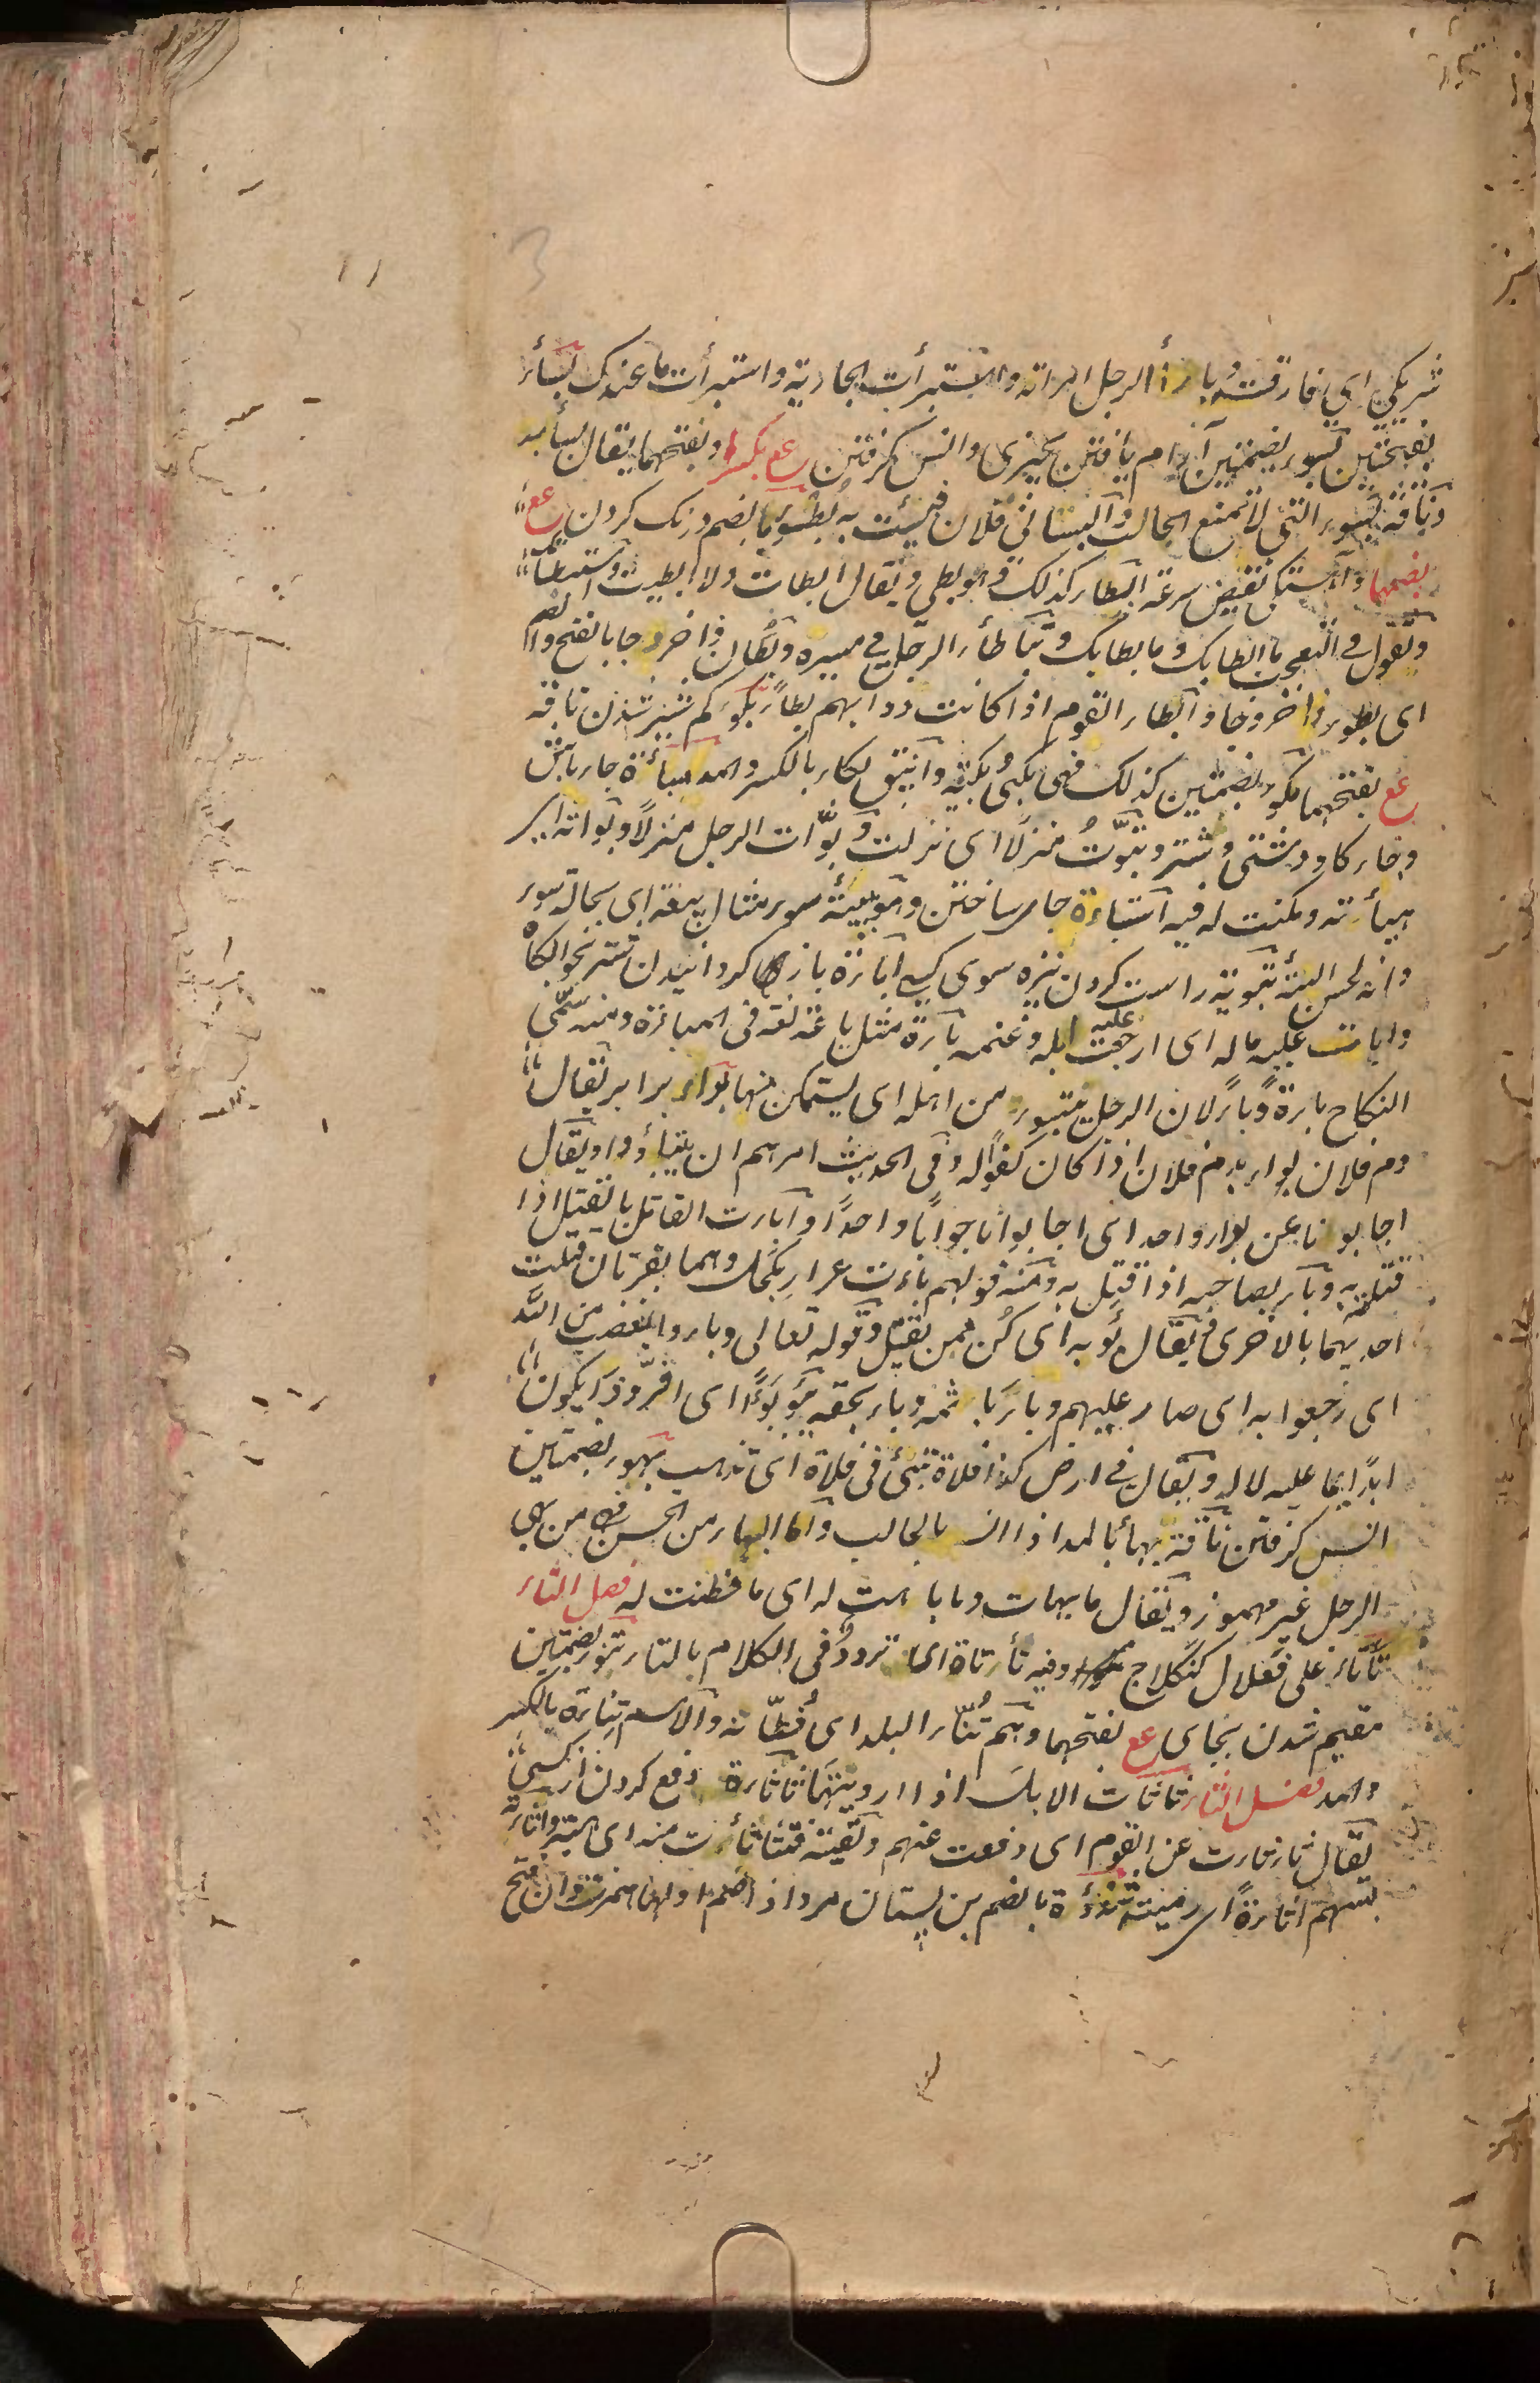 شریکی ای فارقته و بارأ الرجل امراته واستبرأت الجاریة واستبرأت ما عندک بساٴ
بفتحتین بسوء بضمتین آرام یافتن بچیزی وانس گرفتن عع بکسرها وبفتحهما یقال بسأ به
وناقة بسوء التی لا تمنع الحالب وابسانی فلان فبسئت به بطوء بالضم درنگ کردن عع
بضمها وآهستگی نقیض سرعة ابطاء کذلک فهو بطی ویقال ابطات ولا ابطیت واستبطأ
وتقول فی التعجب ما ابطابک وما بطابک وتباطأ الرجل فی مسیره وبطآن ذا خروجا بالفتح والضم
ای بطوء ذا خروجا وابطاء القوم اذا کانت دوابهم بطاء بکوء کم شیر شدن ناقه
عع بفتحهما بکوء بضمتین کذلک فهی بکیٌ بکیئة واینق بکاء بالکسر والمد مباءة جای باش
وجای گاو دشتی و شتر وتبوّتُ منزلا ای نزلت وبوّات الرجل منزلاً وبواته ای
هیأته ومکنت له فیه استباءة جای ساختن وهو ببیئة سوء مثال بیعة ای بحالة سوء
وانه لحسن البیئة تبویة راست کردن نیزه سوی کسی اباءة باز کردانیدن شتر بخوابگاه
وابات علیه ماله ای ارجعت علیه ابله وغنمه باءة مثل باعة لغة فی المباءة ومنه سمّی
النکاح باءة وباءً لان الرجل یتبوء من اهله ای یستمکن منها بواء برابر یقال
دم فلان بواء بدم فلان اذا کان کفوا له وفی الحدیث امرهم ان یتباؤوا ویقال
اجابونا عن بواء واحد ای اجابوانا جواباً واحداً وابات القاتل بالقتیل اذا
قتلته به وباء بصاحبه اذا قتل به ومنه قولهم باءت عرار بکحل وهما بقرتان قتلت
احدیهما بالاخری ویقال بُؤ به ای کن ممن یقتل وقوله تعالی وباءوا بغضب من الله
ای رجعوا به ای صار علیهم وباء باثمه وباء بحقه یبوء بوءًا ای اقرّ وذا یکون
ابداً بما علیه لا له ویقال فی ارض کذا فلاة تبیئ فی فلاة ای تذهب بهوء بضمتین
انس گرفتن ناقة بهاء بالمد اذا انس بالحالب واما البهاء من الحسن فهو من بهی
الرجل غیر مهموز ویقال ما بهات وما باهت له ای ما فطنت له فصل التاء
تأتاء علی فعلال کنگلاج وفیه تأتأة ای تردد فی الکلام بالتاء تنوء بضمتین
مقیم شدن بجای عع بفتحهما وهم تُنّاء البلد ای قطّانه والاسم تِناءة بالکسر
والمد فصل الثاء ثاثات الابل اذا ارویتها ثاثاءة دفع کردن از کسی
یقال ثاثات عن القوم ای دفعت عنهم ولقیته فتثاثأت منه ای هبته واثاته
بسهم اثاءة ای رمیته ثندؤة بالضم بن پستان مرد اذا ضم اولها همزت وان فتح